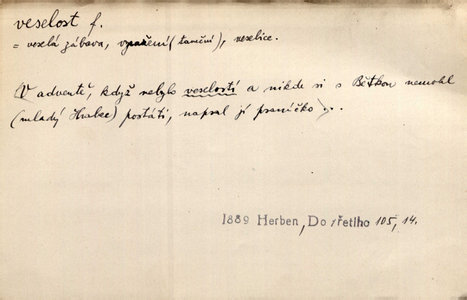 veselost f.
= veselá zábava, vyražení (taneční), veselice.
(V adventě, když nebylo veselostí a nikde si s Bětkou nemohl
(mladý Hrabec) postáti, napsal jí psaníčko)..
1889 Herben, Do třetího 105, 14.